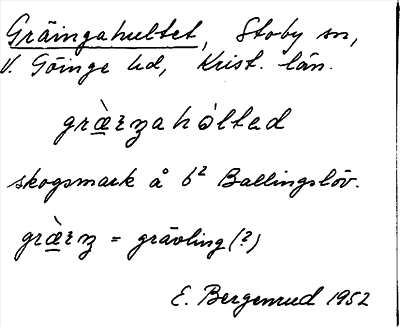 Gräingahultet, Stoby sn,
V. Göinge hd, Krist. län.
græ̀ꝛzahòlted
skogsmark å 6² Ballingslöv.
græ̀ꝛz = grävling (?)
E. Bergenrud 1952